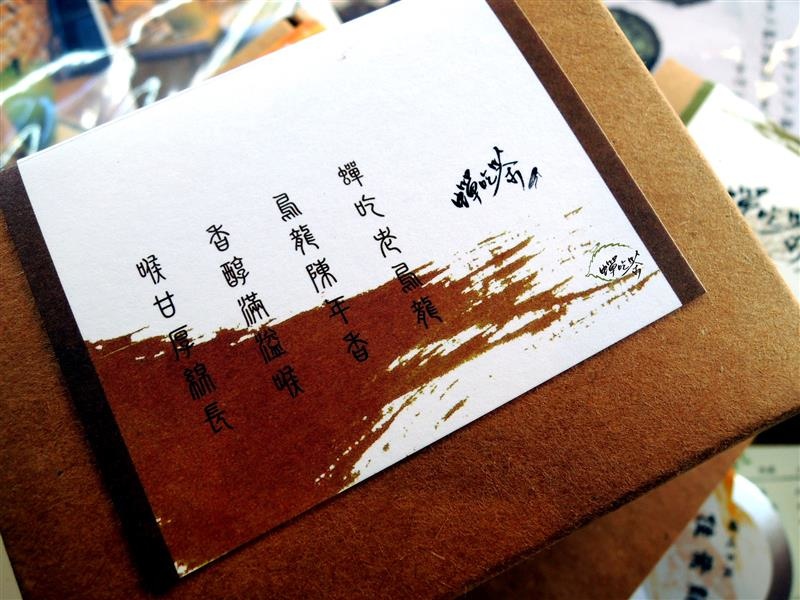 蟬吃茶
蟬吃老烏龍
烏龍陳年香
香醇滿溢喉
喉甘厚綿長
蟬吃茶